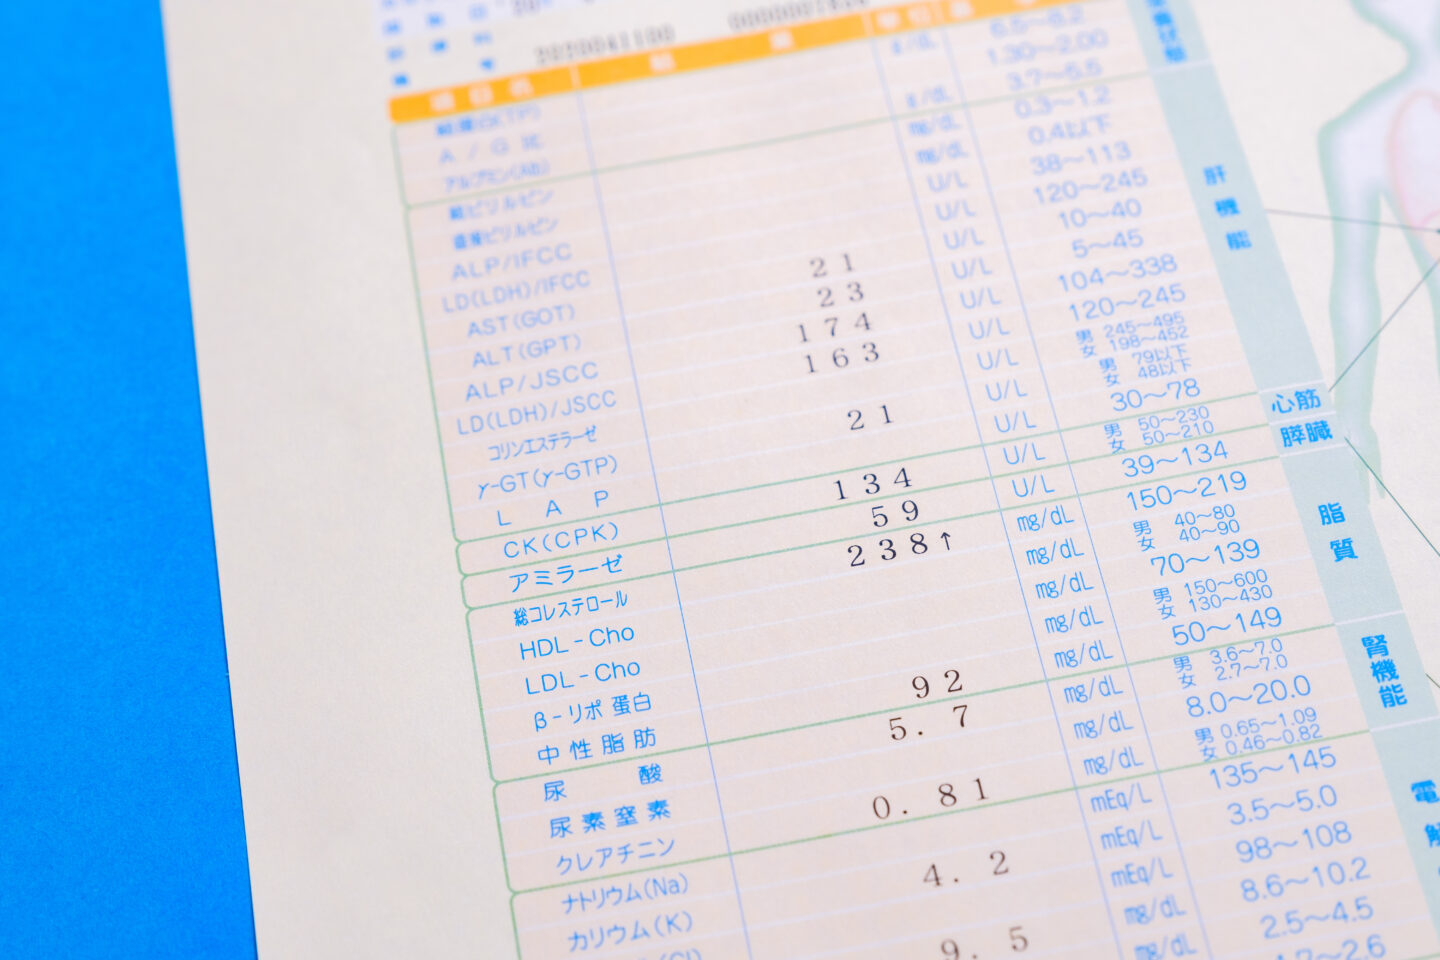 2020041100
項目名 結果 単位
g/dL 6.5〜8.2
総蛋白(TP) 1.30〜2.00
A/G比 g/dL 3.7〜5.5
アルブミン(Alb) mg/dL 0.3〜1.2
総ビリルビン mg/dL 0.4以下
直接ビリルビン U/L 38〜113
ALP/IFCC U/L 120〜245
LD(LDH)/IFCC U/L 10〜40
AST(GOT) 21 U/L 5〜45
ALT(GPT) 23 U/L 104〜338
ALP/JSCC 174 U/L 120〜245
LD(LDH)/JSCC 163 U/L 男 245〜495 女 198〜452
コリンエステラーゼ U/L 男 79以下 女 48以下
γ-GT(γ-GTP) 21 U/L 30〜78
LAP U/L 男 50〜230 女 50〜210
CK(CPK) 134 U/L 39〜134
アミラーゼ 59 mg/dL 150〜219
総コレステロール 238↑ mg/dL 男 40〜80 女 40〜90
HDL-Cho mg/dL 70〜139
LDL-Cho mg/dL 男 150〜600 女 130〜430
β-リポ蛋白 mg/dL 50〜149
中性脂肪 92 mg/dL 男 3.6〜7.0 女 2.7〜7.0
尿酸 5.7 mg/dL 8.0〜20.0
尿素窒素 mg/dL 男 0.65〜1.09 女 0.46〜0.82
クレアチニン 0.81 mEq/L 135〜145
ナトリウム(Na) mEq/L 3.5〜5.0
カリウム(K) 4.2 mEq/L 98〜108
mg/dL 8.6〜10.2
9.5 mg/dL 2.5〜4.5
肝機能
心筋
膵臓
脂質
腎機能
電解